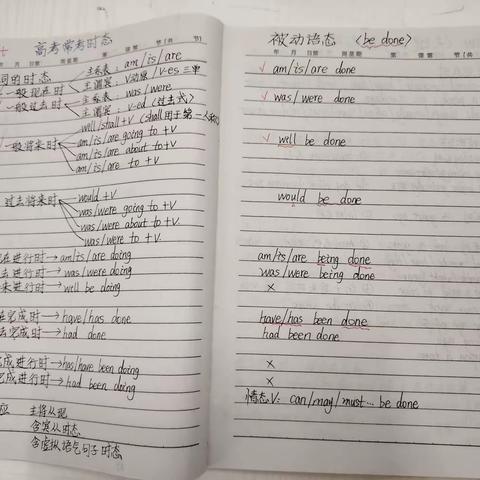 高考常考时态
同的时态
一般现在时 主系表: am/is/are
主谓宾: V动原/V-es三单
一般过去时 主系表: was/were
主谓宾: v-ed (过去式)
一般将来时 will/shall+V (shall用于第一人称)
am/is/are going to +V
am/is/are about to +V
am/is/are to +V
过去将来时 would +V
was/were going to +V
was/were about to +V
was/were to +V
在进行时→am/is/are doing
去进行时→was/were doing
来进行时→will be doing
在完成时→have/has done
去完成时→had done
完成进行时→has/have been doing
完成进行时→had been doing
应 主将从现
含宾从时态
含虚拟语气句子时态
被动语态 (be done)
√ am/is/are done
√ was/were done
√ will be done
would be done
am/is/are being done
was/were being done
×
have/has been done
had been done
×
×
情态V: can/may/must... be done